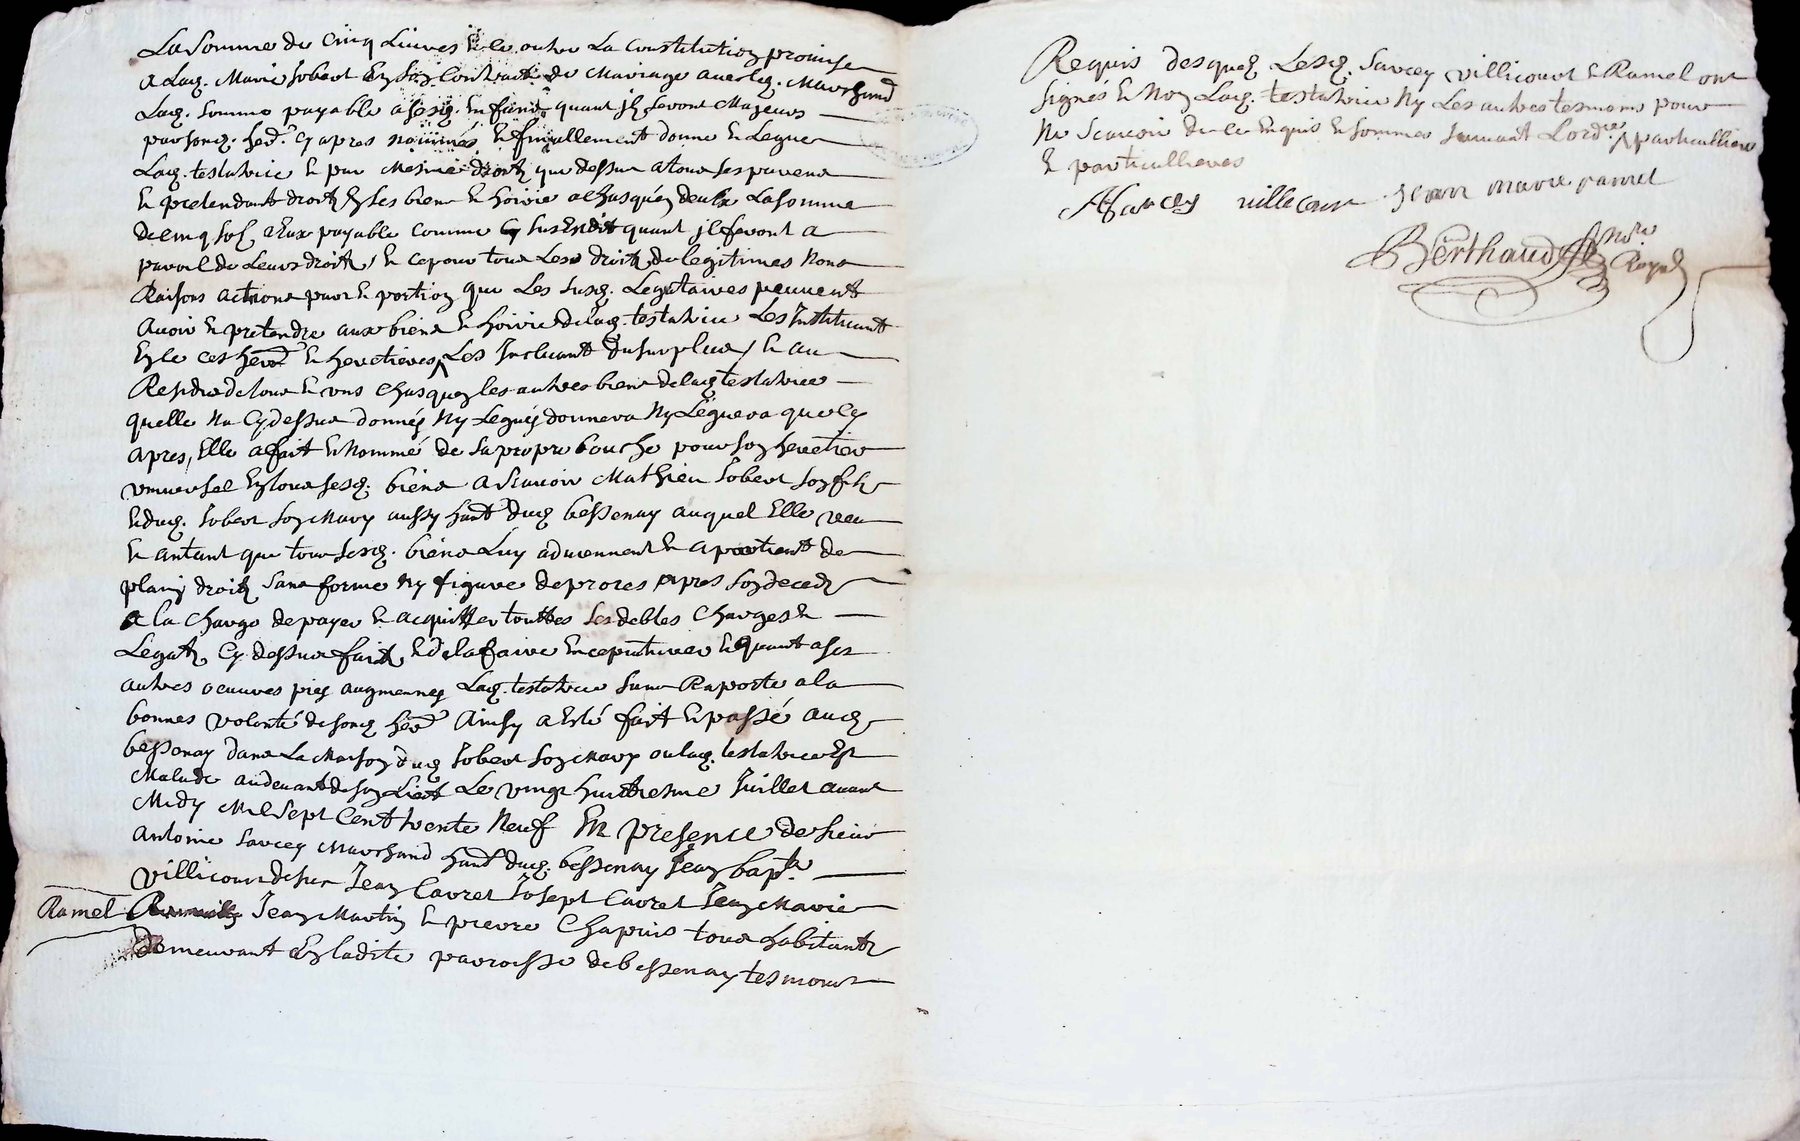 La somme de cinq Livres Et ce outre La Constitution promise
a Lad. Marie Jobert En son Contract de Mariage avec led. Marchand
Lad. somme payable a sesd. Enfans quant ils seront Majeurs
par sond. her. cy apres nommés Et finallement donne Et Legue
Lad. testatrice Et par Mesme droit que dessus a tous ses parens
Et pretendant droit En ses biens Et hoirie a Chasqun deulx La somme
de cinq sols a Eux payable comme susEndit quant ils feront a
paroir de Leurs droits, Et ce pour tous Les droits de legitimes Noms
Raisons actions part Et portion que Les susd. Legataires peuvent
avoir Et pretendre aux biens Et hoirie de lad. testatrice Les Instituant
En ce ses her. Et heretieres Les Incluant du surplus / Et au
Residu de tous Et uns Chasquns les autres biens de lad. testatrice
quelle Na Cy dessus donnés Ny Legués donnera Ny Leguera que cy
apres, Elle a fait Et Nommé de sa propre bouche pour son heretier
universel En tous sesd. biens a scavoir Mathieu Jobert son fils
Et dud. Jobert son Mary aussy hant. dud. bessenay auquel Elle veu
Et antant que tous sesd. biens Luy adviennent Et apartient de
plain droit sans forme Ny figure de proces apres son deceds
a la Charge de payer Et acquitter touttes ses debtes Charges Et
Legats Cy dessus faits Et quant a ses
autres oeuvres pies augmennes Lad. testatrice sans Raporte a la
bonnes volonté de sond. her. Ainsy a Esté fait Et passé aud.
bessenay dans La Maison dud. Jobert son Mary ou lad. testatrice Est
Malade au devant de son Lict Le vingt huictiesme Juillet avant
Midy Mil sept Cent trente Neuf En presence de sieur
Antoine Sarcey Marchand hant. dud. bessenay Jean bapte.
villicourt Jean Carret Joseph Carret Jean Marie
Ramel Jean Martin Et pierre Chapuis tous habitants
demeurant En ladite parroisse de bessenay tesmoins
Requis desquels Lesd. Sarcey villicourt Et Ramel ont
signés Et Non Lad. testatrice Ny Les autres tesmoins pour
Ne scavoir de ce Enquis Et sommes suivant Lordre. particulliere
Et particullieres
A Sarcey villecour jean marie ramel
Berthaud Nore. Royal